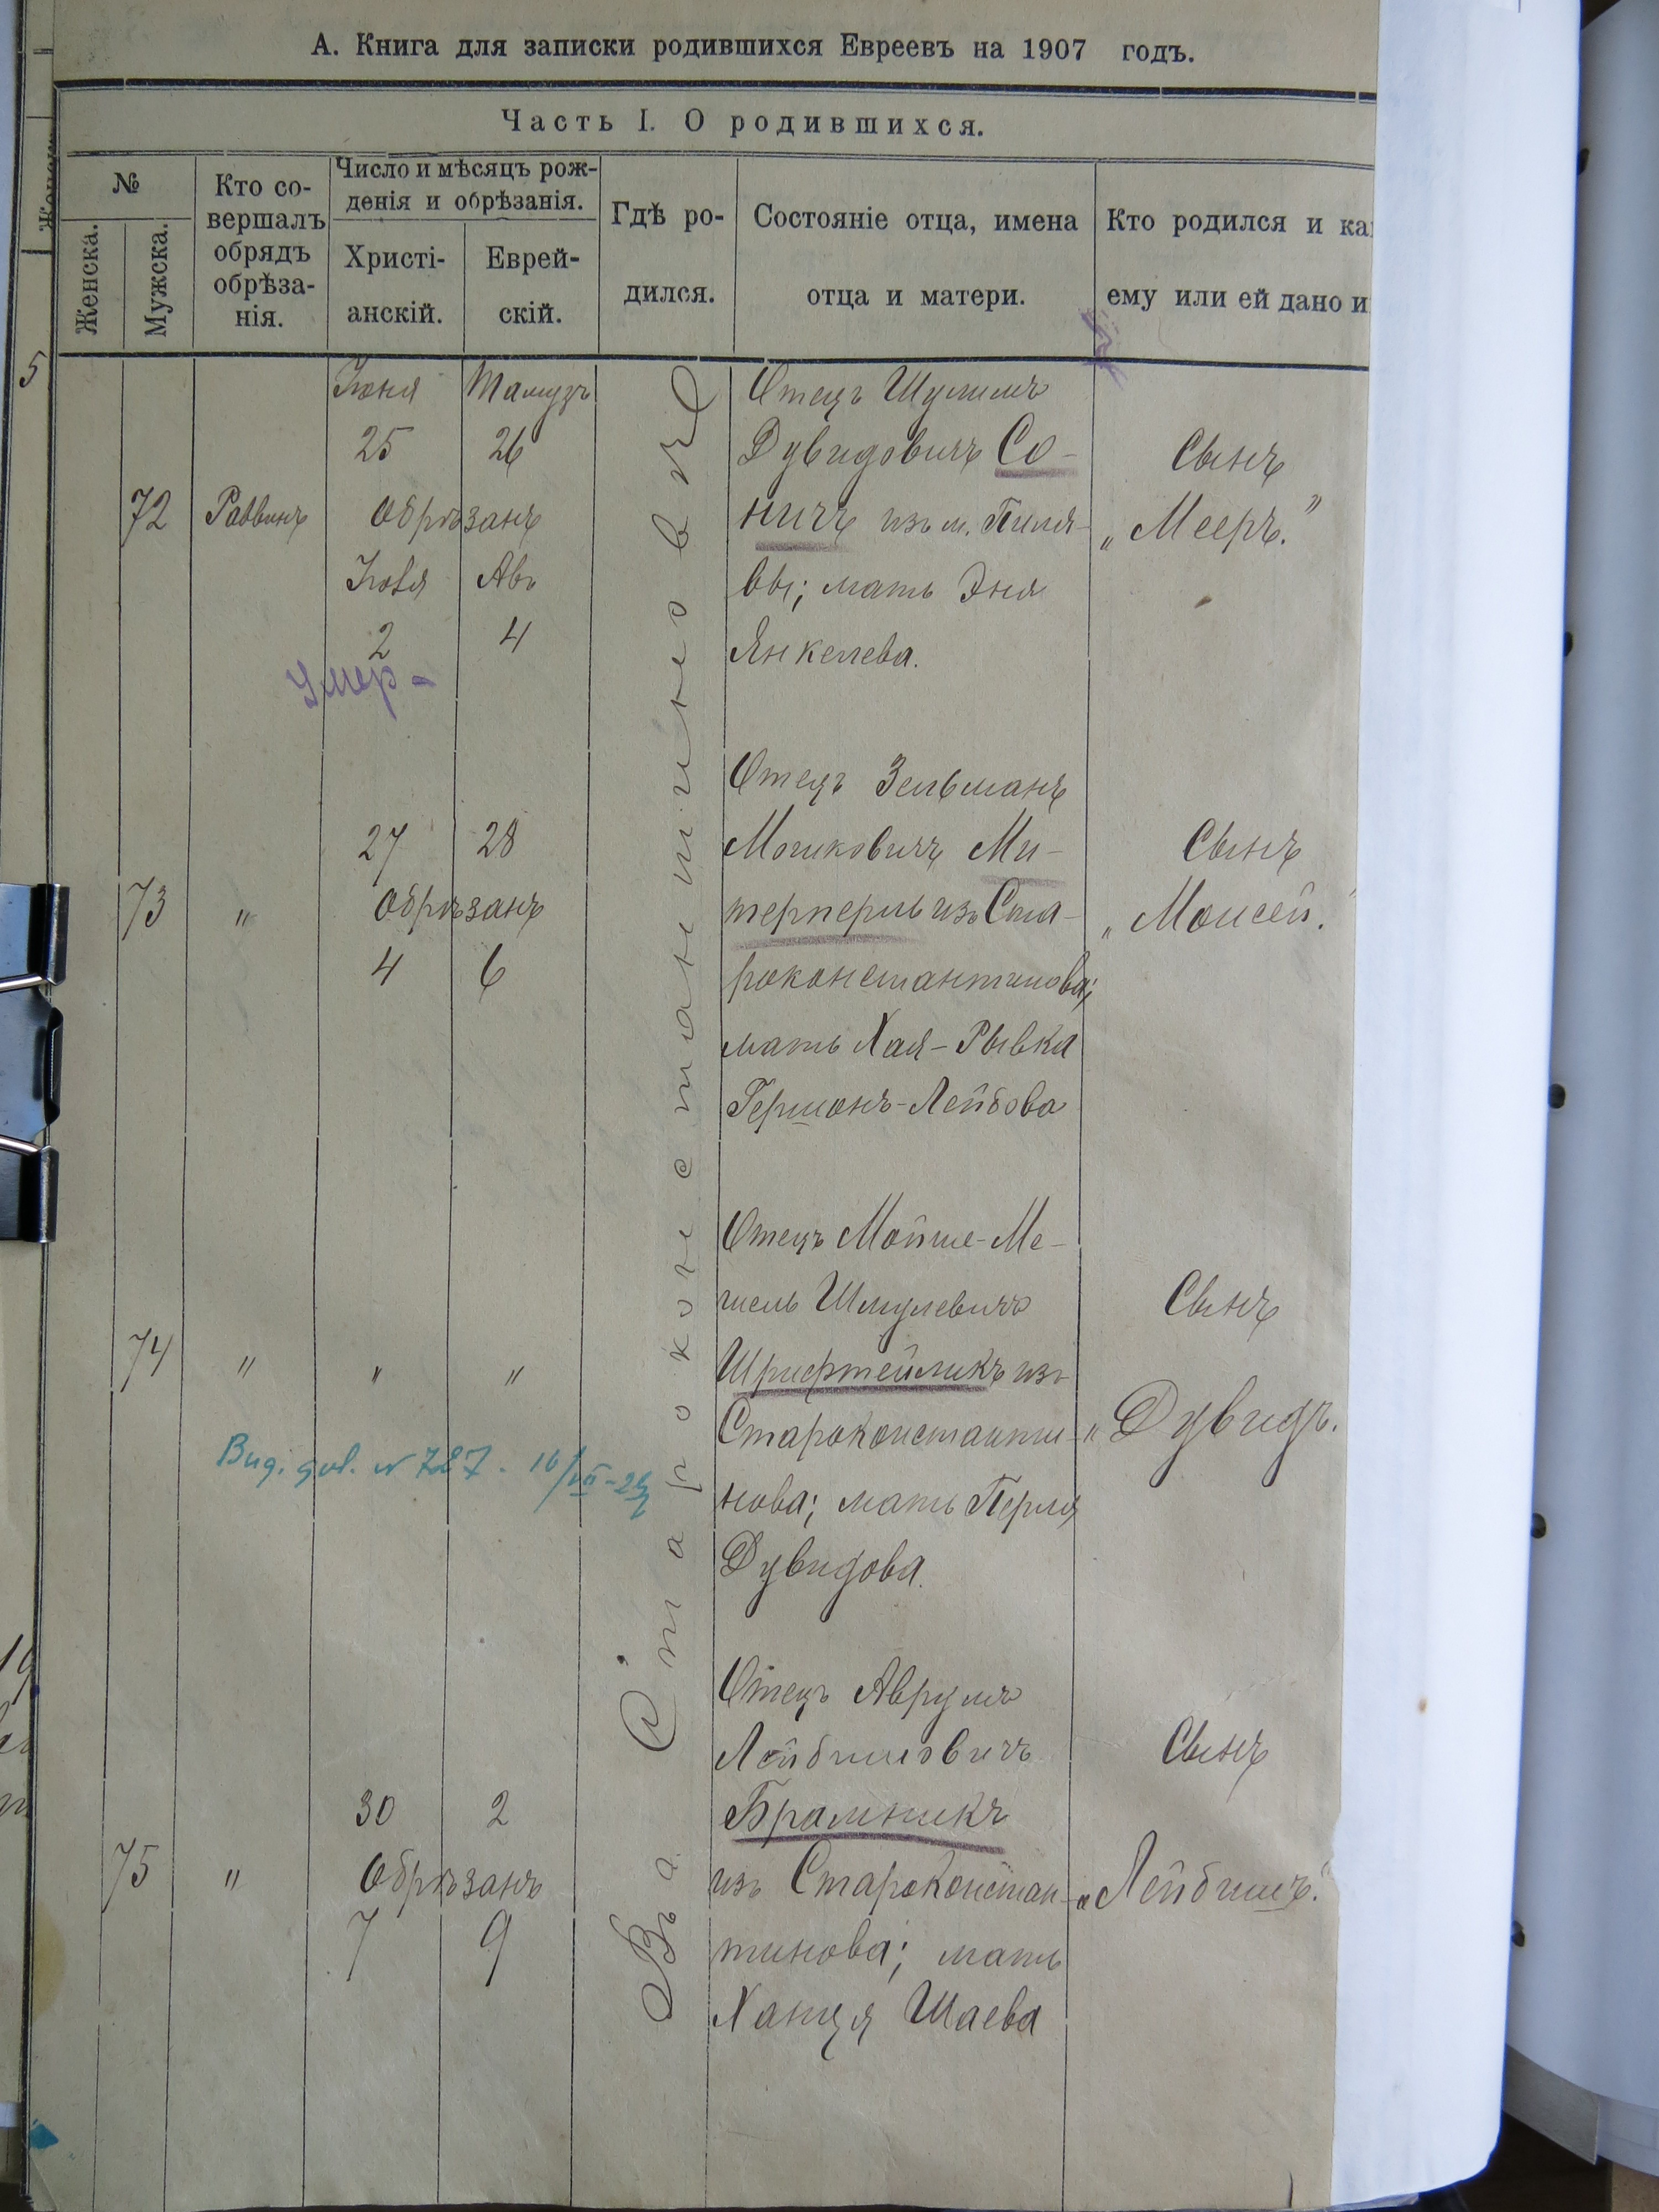 А. Книга для записки родившихся Евреевъ на 1907 годъ.
Часть I. О родившихся.
№
Женска.
Мужска.
Кто со-
вершалъ
обрядъ
обрѣза-
нія.
Число и мѣсяцъ рож-
денія и обрѣзанія.
Христі-
анскій.
Еврей-
скій.
Гдѣ ро-
дился.
Состояніе отца, имена
отца и матери.
Кто родился и ка
ему или ей дано и
5
Въ Староконстантиновѣ
72
Раввинъ
Іюня Тамузъ
25 26
Обрѣзанъ
Іюля Авъ
2 4
Умер -
Отецъ Шулимъ
Дувидовичъ Со-
ничъ изъ м. Пиля-
вы; мать Эня
Янкелева.
Сынъ
„Мееръ."
73
"
27 28
Обрѣзанъ
4 6
Отецъ Зельманъ
Мошковичъ Ми-
терперль изъ Ста-
роконстантинова;
мать Хая-Рывка
Гершонъ-Лейбова
Сынъ
„Моисей."
74
" " "
Отецъ Мойше-Ме-
Шмулевичъ
Шрифтейликъ изъ
Староконстанти-
нова; мать Перля
Дувидова.
Сынъ
„Дувидъ.
Вид. N 787. 16/VII-
75
"
30 2
Обрѣзанъ
7 9
Отецъ Аврумъ
Лейбишовичъ
Брамникъ
изъ Староконстан-
тинова; мать
Ханця Шаева
Сынъ
„Лейбишъ."